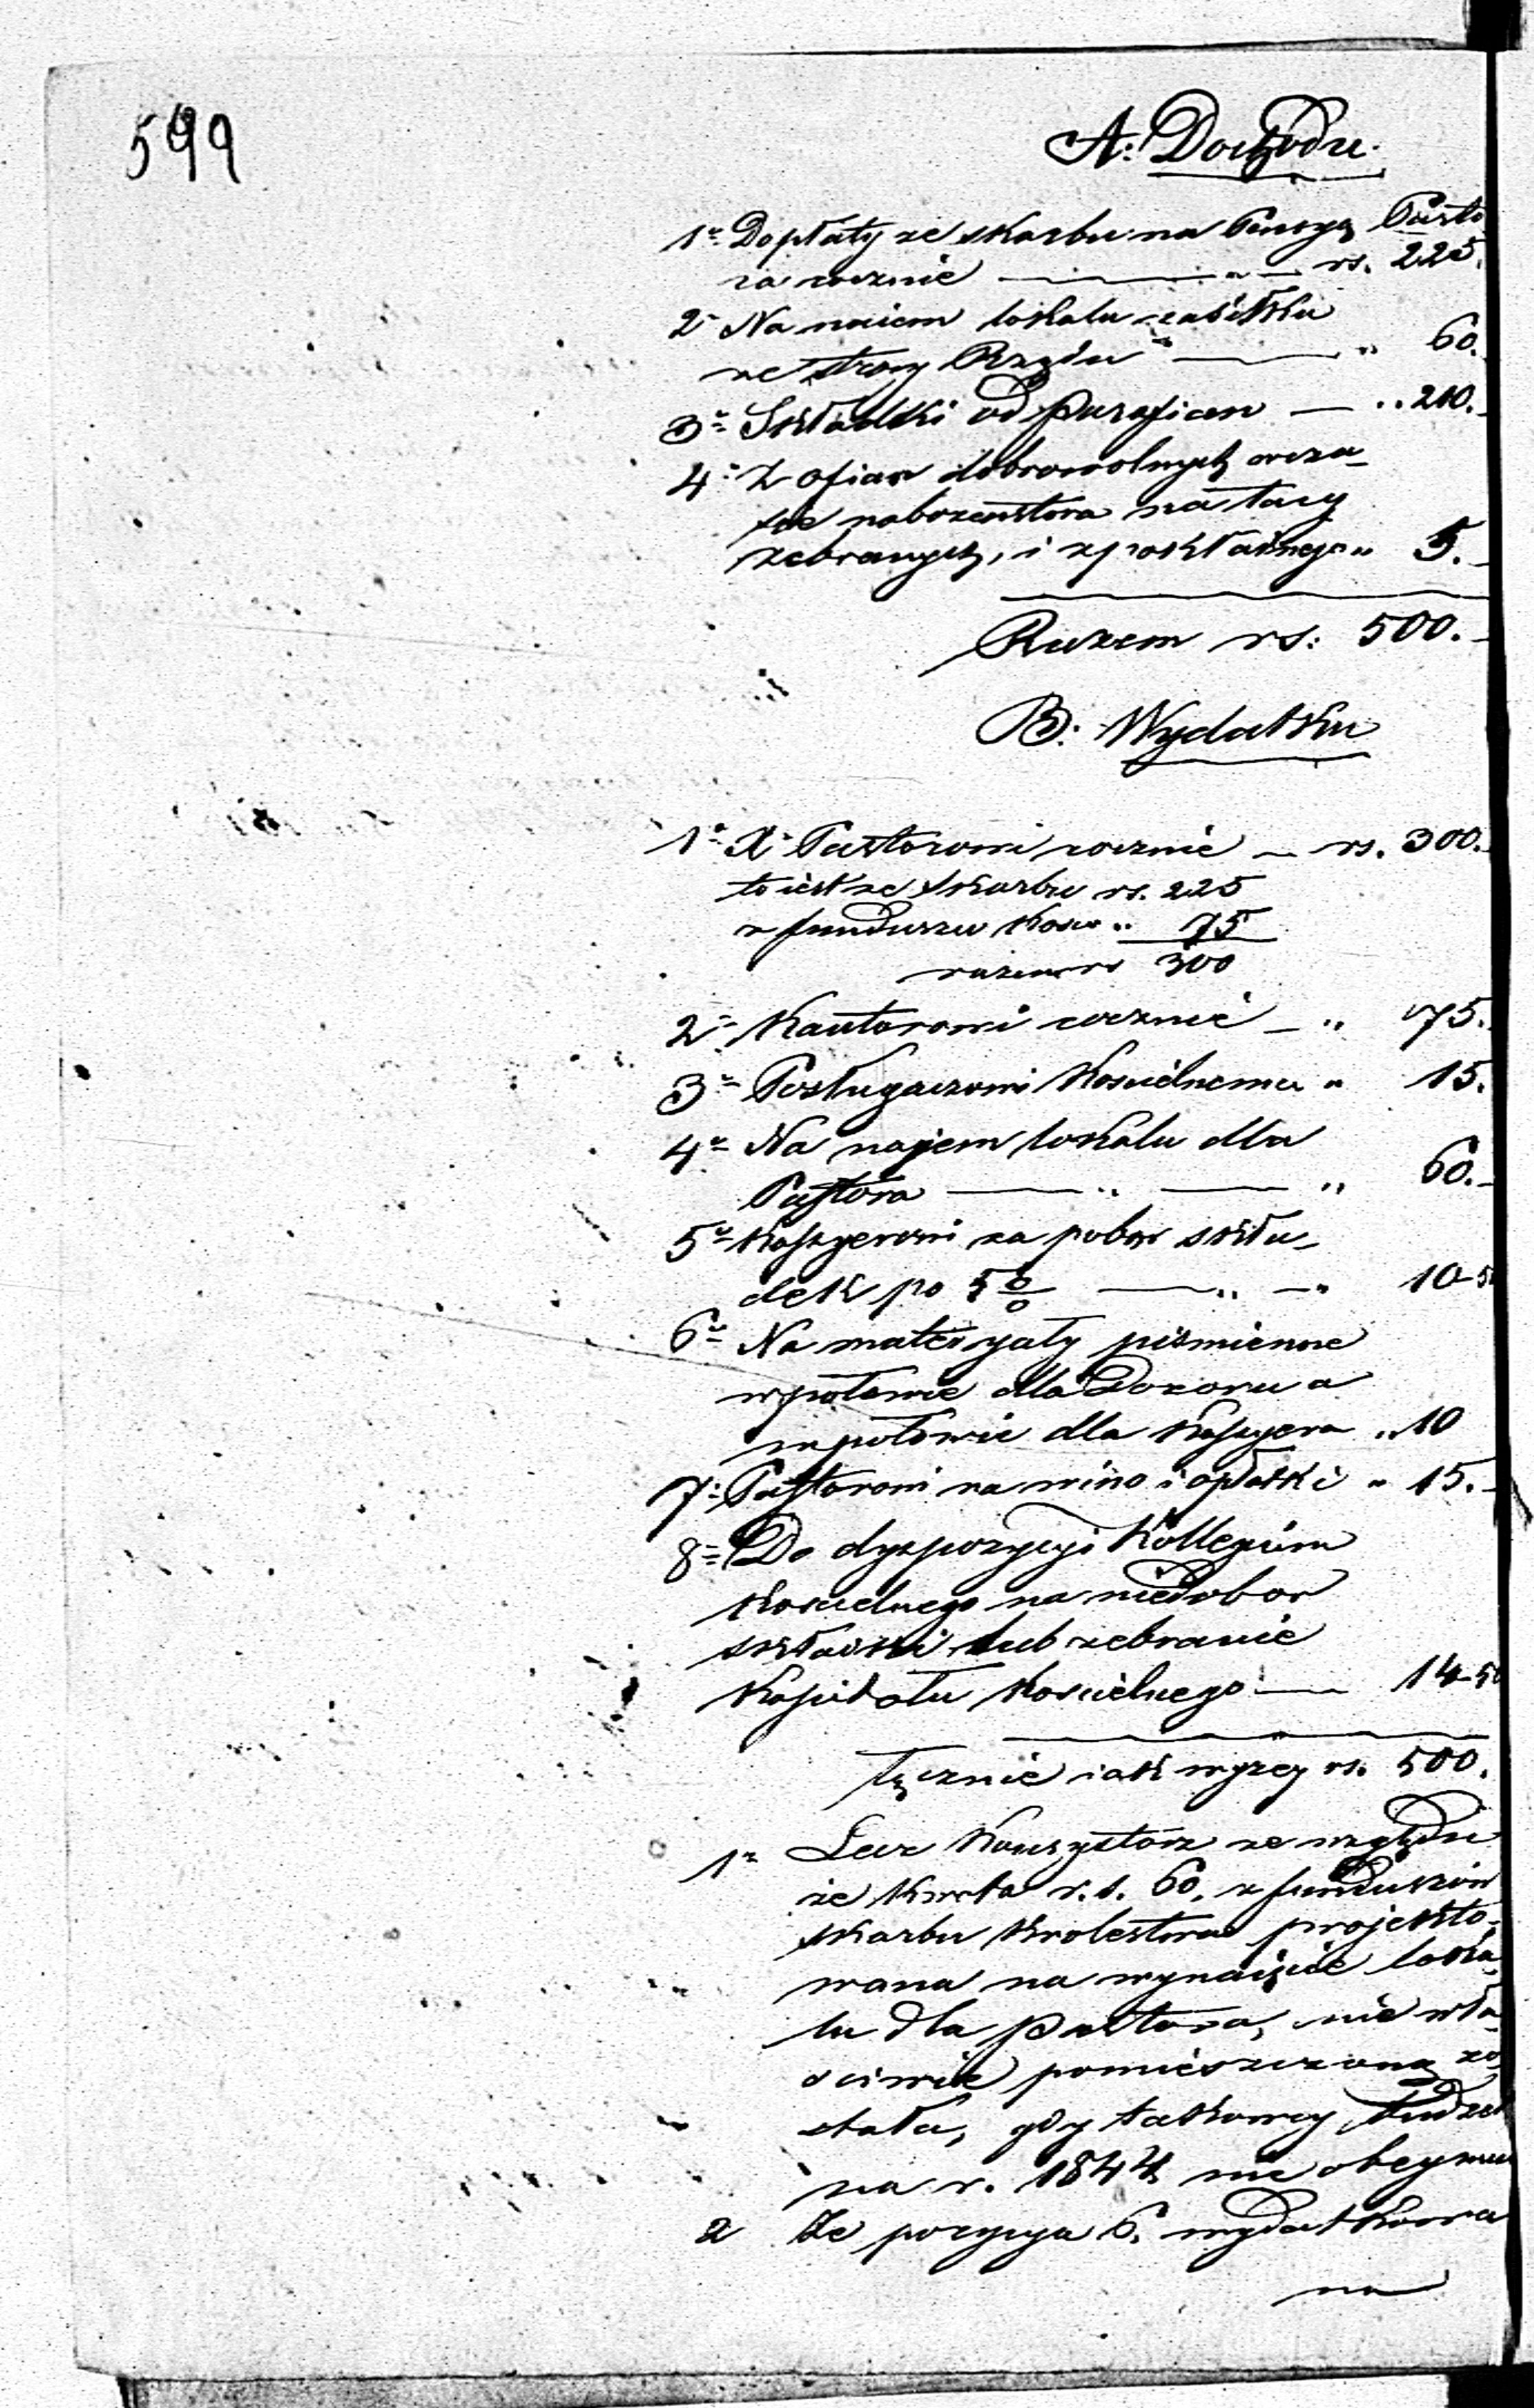 599
A: Dochodu.
1° Dopłaty ze skarbu na Pensyą Pasto
ra rocznie — „ — rs. 225.
2° Na naiem lokalu zasiłku
ze strony Rządu — „ 60.
3° Składki od parafian — „ 210.
4° Z ofiar dobrowolnych w cza-
sie nabozenstwa na tacy
zebranych, i z pokładnego „ 5.
Razem rs: 500.
B: Wydatku
1° X. Pastorowi rocznie — rs. 300.
to iest ze skarbu rs. 225
z funduszu Kosc „ 75
razem rs 300
2° Kantorowi rocznie — „ 75.
3° Posługaczowi Koscielnemu „ 15.
4° Na najem lokalu dla
Pastora — „ — „ 60.
5° Kassyerowi za pobor skła-
dek po 5 % — „ — „ 10-50
6° Na materyały pismienne
w połowie dla Dozoru a
w połowie dla Kassyera „ 10
7° Pastorowi na wino i opłatki „ 15.
8° Do dyspozycyi Kollegium
Koscielnego na niedobor
składki lub zebranie
Kapitału Koscielnego — 14-50
łącznie iak wyzey rs. 500.
1° Lecz Konsystorz ze względu
ze kwota r.s. 60. z funduszów
skarbu Krolestwa projekto-
wana na wynaięcie loka-
lu dla pastora, nie wła-
sciwie pomieszczoną zo-
stała, gdy takowey
na r. 1844 nie obeymu
2 Ze pozycya 6. wydatkowa
na